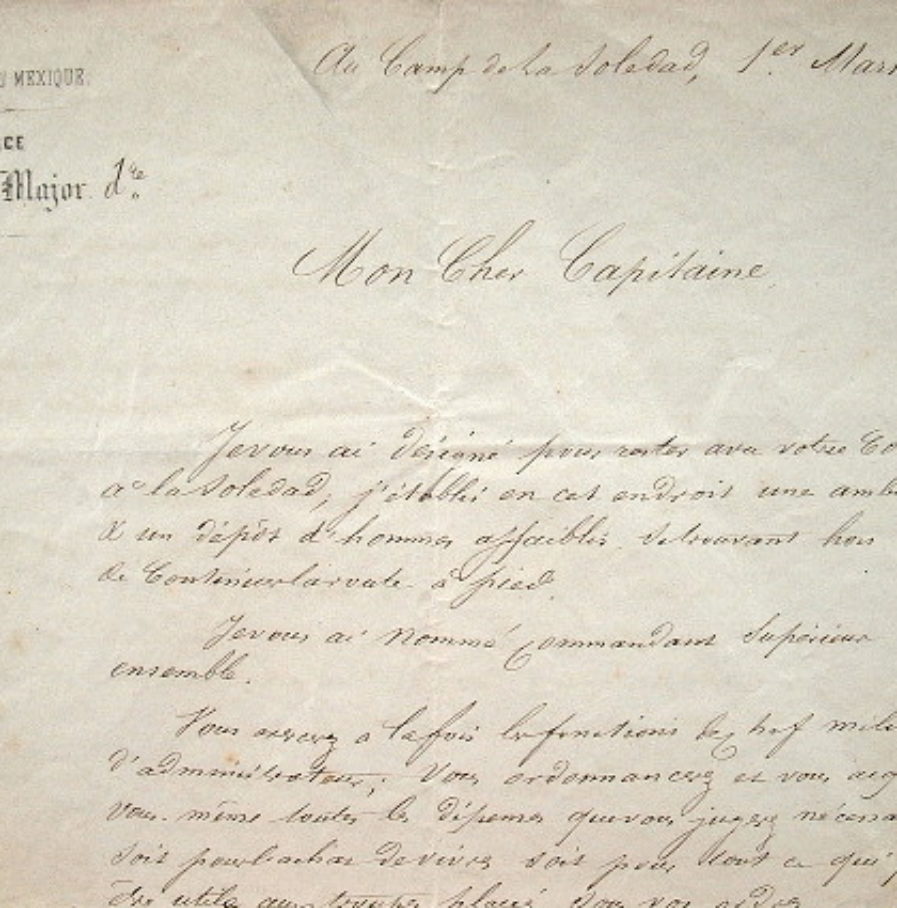 U MEXIQUE.
Au Camp de la Soledad, 1er Mars
CE
Major. dre
Mon Cher Capitaine
Je vous ai désigné pour rester avec votre Co
à la Soledad, j'établis en cet endroit une amb
& un dépôt d'hommes affaiblis se trouvant hors
de Continuer la route à pied.
Je vous ai nommé Commandant Supérieur
ensemble.
Vous à la fois les fonctions de chef mili
d'administrateur, Vous ordonnancerez et vous
vous-même toutes les dépenses que vous jugez nécessa
soit pour l'achat de vivres soit pour tout ce qui
être utile aux troupes placé sous vos ordres